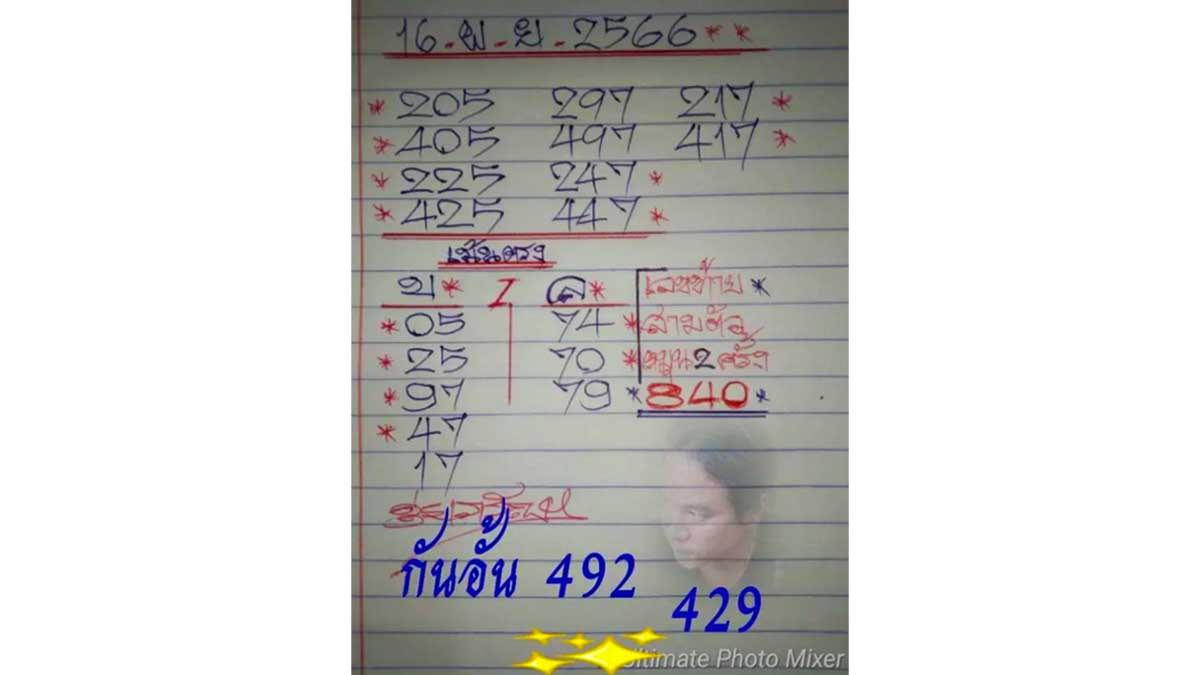 16.พ.ย.2566**
*205 297 217*
*405 497 417*
*225 247*
*425 447*
เน้นตรง
บ* 1 ล*
*05 74
*25 70
*97 79
*47
17
เลขท้าย*
*สามตัว
*หมุน2ครั้ง
*840*
กันอั้น 492
429
Ultimate Photo Mixer